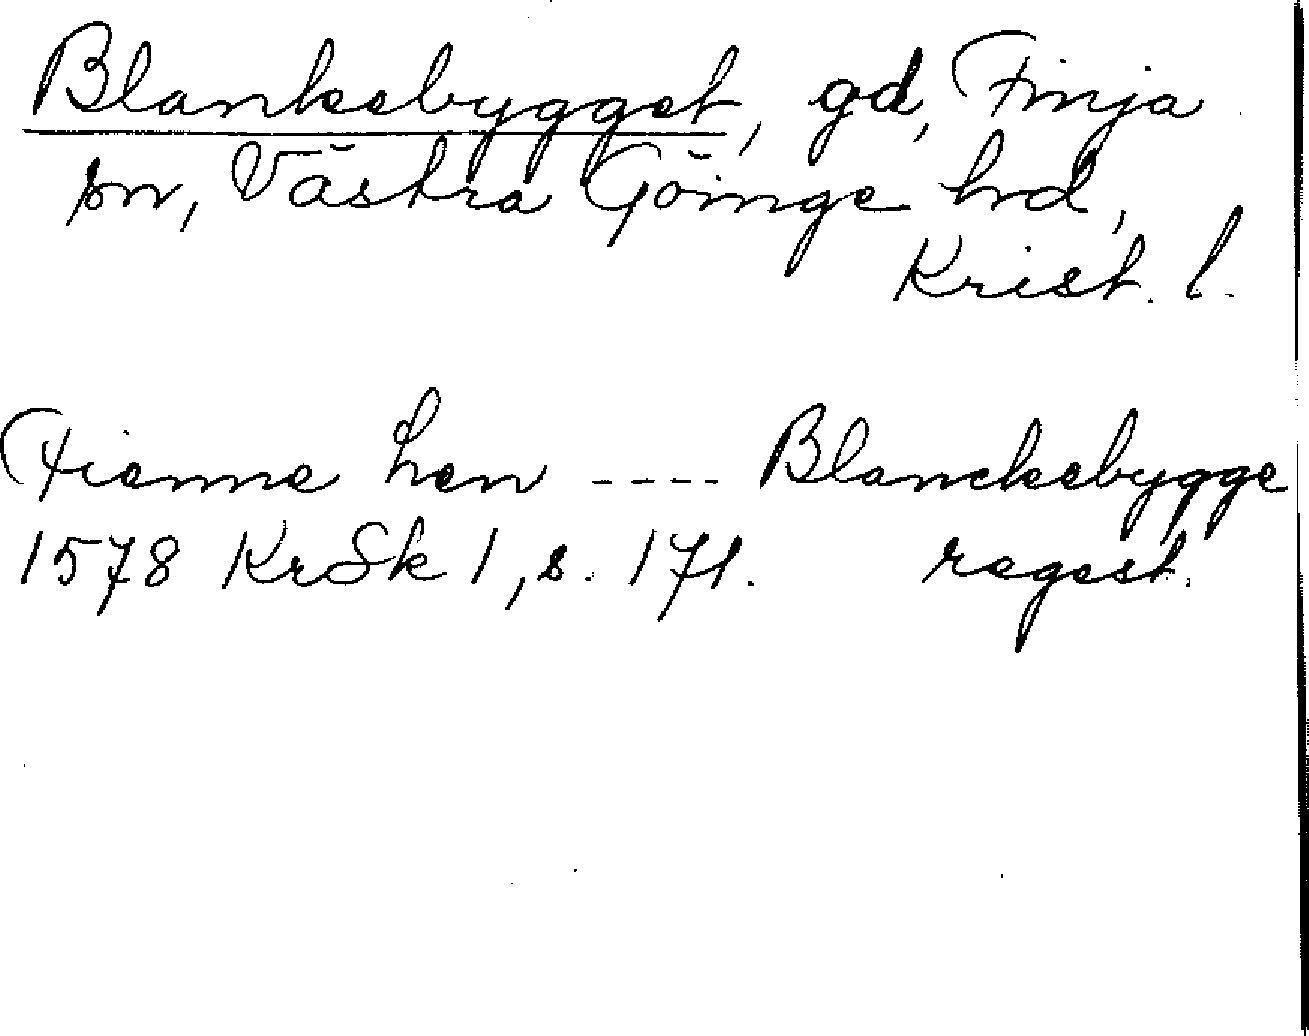 Blankebygget, gd, Finja
sn, Västra Göinge hd,
Krist. l.
Fienne Len ---- Blanckebygge
1578 KrSk 1, s. 171. regest.